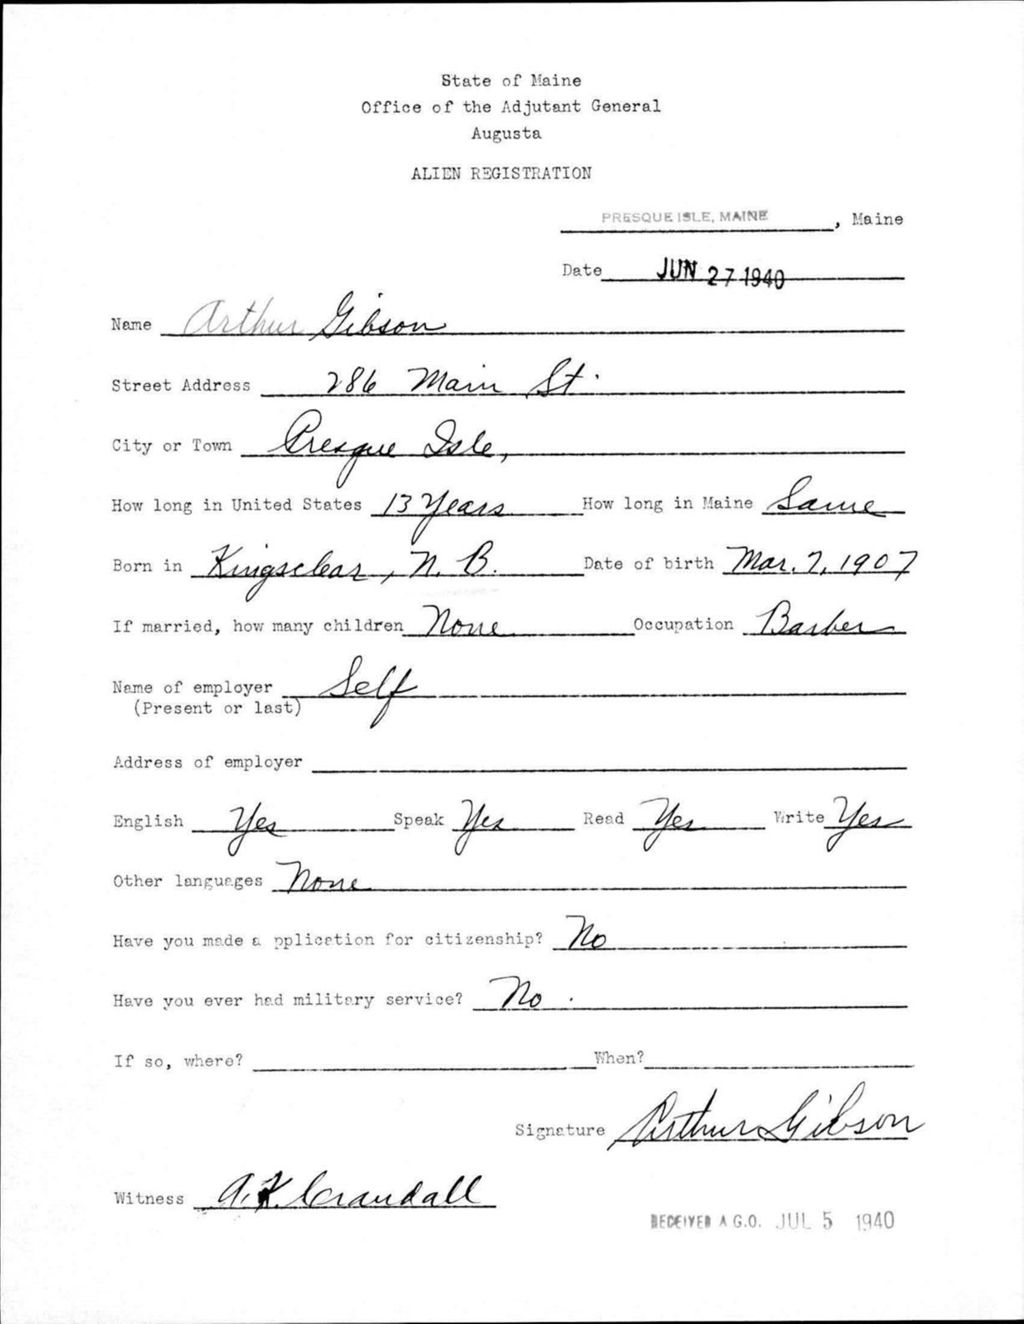 State of Maine
Office of the Adjutant General
Augusta
ALIEN REGISTRATION
PRESQUE ISLE, MAINE, Maine
Date JUN 27 1940
Name Arthur Gibson
Street Address 286 Main St.
City or Town Presque Isle,
How long in United States 13 Years How long in Maine Same
Born in Kingsclear, N. B. Date of birth Mar. 7, 1907
If married, how many children None Occupation Barber
Name of employer Self
(Present or last)
Address of employer
English Yes Speak Yes Read Yes Write Yes
Other languages None
Have you made a pplication for citizenship? No
Have you ever had military service? No.
If so, where? When?
Signature Arthur Gibson
Witness A. K. Crandall
RECEIVED A G.O. JUL 5 1940